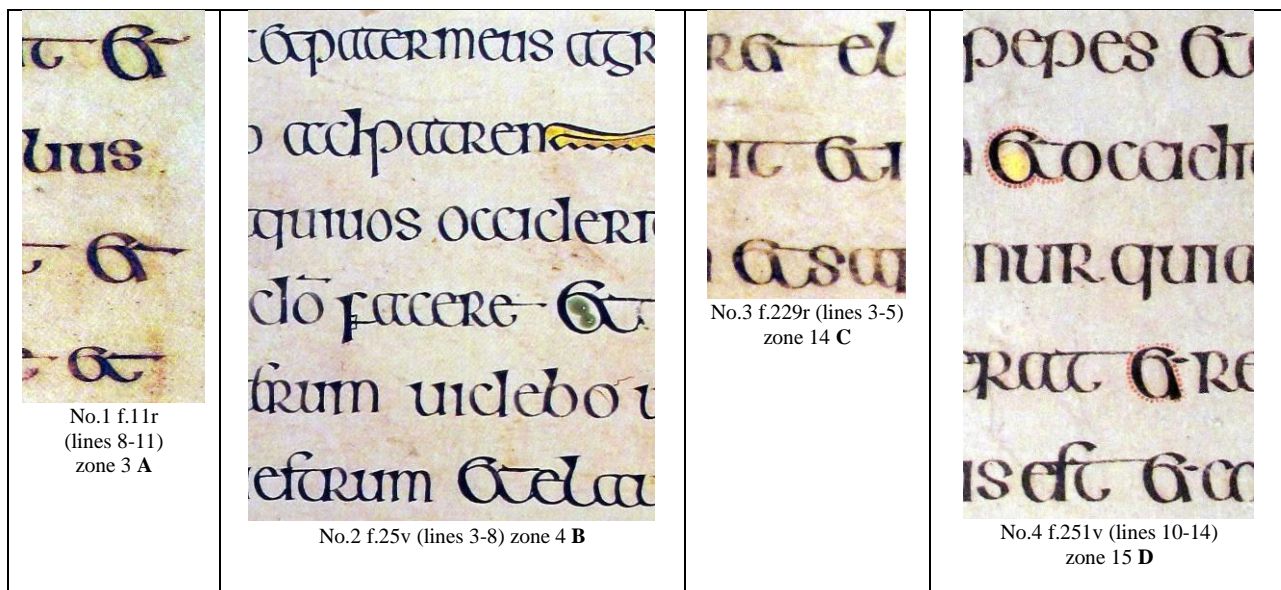 t et
uius
et
et
No.1 f.11r
(lines 8-11)
zone 3 A
etpatermeus agr
adpatrem
quiuos occideri
dō facere et
trum uidebo u
estrum etelau
No.2 f.25v (lines 3-8) zone 4 B
re el
it eti
etsap
No.3 f.229r (lines 3-5)
zone 14 C
pepes et
etoccidi
nur quia
erat et re
is est et co
No.4 f.251v (lines 10-14)
zone 15 D